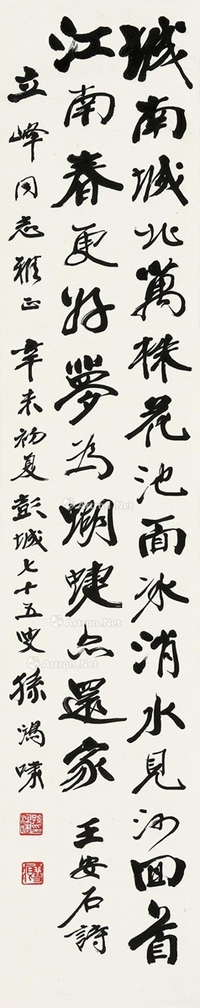 城南城北萬株花池面冰消水見沙回首
江南春更好夢為蝴蝶亦還家 王安石詩
立峰同志雅正 辛未初夏彭城七十五叟孫鴻嘯